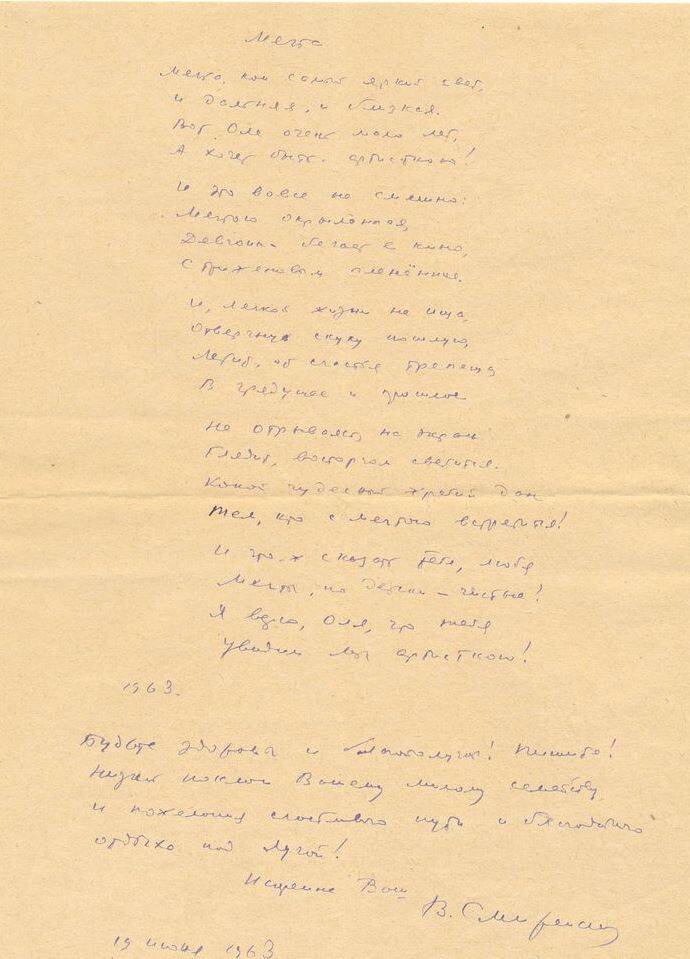 Мечта
Мечта, как самый яркий свет,
и дальняя, и близкая.
Вот Оле очень мало лет,
А хочет быть артисткою!
И это вовсе не смешно:
Мечтою окрыленная,
Девчонка бегает в кино,
С Трижёновым пленённие.
И, легкой жизни не ища,
Отвергнув скуку пошлую,
Летит, от счастья трепеща
В грядущее и прошлое
Не отрываясь на экран
Глядит, восторгом светится.
Какой чудесный жребий дан
Тем, кто с мечтою встретится!
И что ж сказать тебе, любя
Мечты, по детски – чистые!
Я верю, Оля, что тебя
Увидим мы артисткою!
1963.
Будьте здоровы и благополучны! Пишите!
Низкий поклон Вашему милому семейству
и пожелания счастливого пути и благодатного
отдыха под Лугой!
Искренне Ваш
В. Смиренский
19 июня 1963